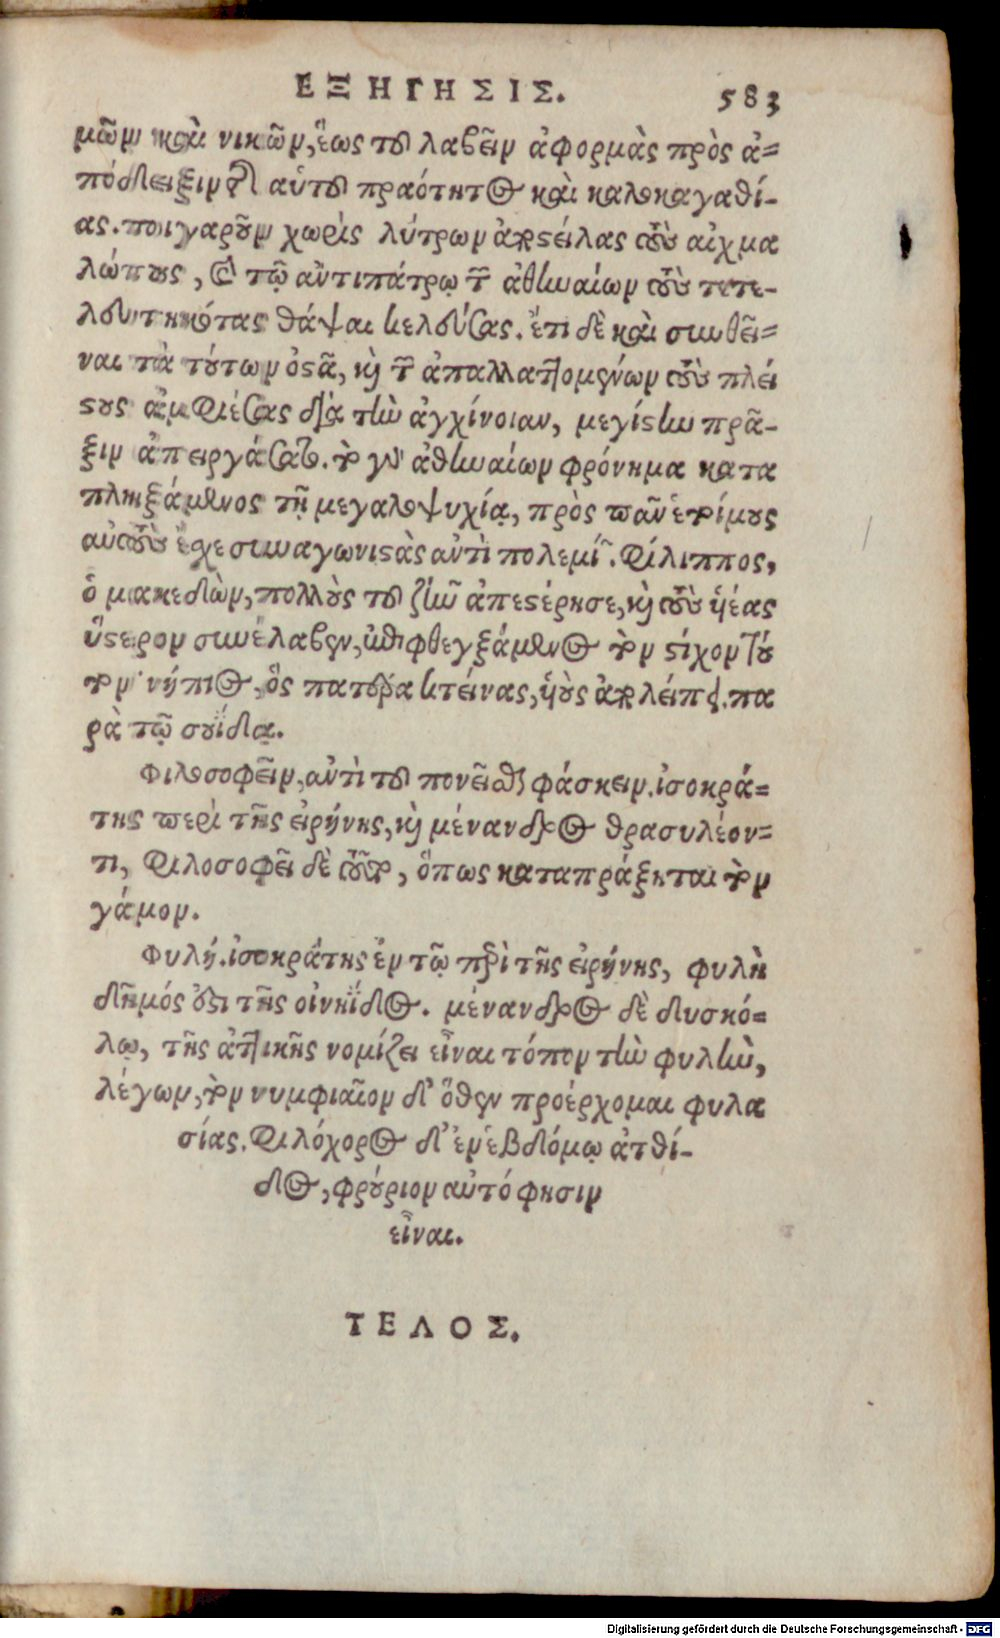 ΕΞΗΓΗΣΙΣ. 583
μῶν καὶ νικῶν, ἕως τοῦ λαβεῖν ἀφορμὰς πρὸς ἀ-
πόδειξιν τῆς αὑτοῦ πραότητος καὶ καλοκαγαθί-
ας. τοιγαροῦν χωρὶς λύτρων ἀποστείλας τοὺς αἰχμα
λώτους, καὶ τῷ ἀντιπάτρῳ τῶν ἀθηναίων τοὺς τετε-
λευτηκότας θάψαι κελεύσας. ἔτι δὲ καὶ συνθεῖ-
ναι τὰ τούτων ὀστᾶ, καὶ τῶν ἀπαλλαττομένων τοὺς πλεί
στους ἀμφιέσας διὰ τὴν ἀγχίνοιαν, μεγίστην πρᾶ-
ξιν ἀπειργάσατο. τὸ γὰρ ἀθηναίων φρόνημα κατα
πληξάμενος τῇ μεγαλοψυχίᾳ, πρὸς πᾶν ἑτοίμους
αὐτοὺς ἔχε συναγωνιστὰς ἀντὶ πολεμίων. Φίλιππος,
ὁ μακεδὼν, πολλοὺς τοῦ ζῆν ἀπεστέρησε, καὶ τοὺς υἱέας
ὕστερον συνέλαβεν, ἐπιφθεγξάμενος τὸν στίχον τοῦ
τον· νήπιος, ὃς πατέρα κτείνας, υἱοὺς ἀπολείπει. πα
ρὰ τῷ σουΐδᾳ.
Φιλοσοφεῖν, ἀντὶ τοῦ πονεῖσθαι φάσκειν. ἰσοκρά-
της περὶ τῆς εἰρήνης, καὶ μένανδρος θρασυλέον-
τι, Φιλοσοφεῖ δὲ τοῦτο, ὅπως καταπράξηται τὸν
γάμον.
Φυλή. ἰσοκράτης ἐν τῷ περὶ τῆς εἰρήνης, φυλὴ
δῆμός ἐστι τῆς οἰνηΐδος. μένανδρος δὲ δυσκό-
λῳ, τῆς ἀττικῆς νομίζει εἶναι τόπον τὴν φυλὴν,
λέγων, τὸν νυμφιαῖον δ' ὅθεν προέρχομαι φυλα
σίας. Φιλόχορος δ' ἐν ἑβδόμῳ ἀτθί-
δος, φρούριον αὐτό φησιν
εἶναι.
ΤΕΛΟΣ.
Digitalisierung gefördert durch die Deutsche Forschungsgemeinschaft - DFG